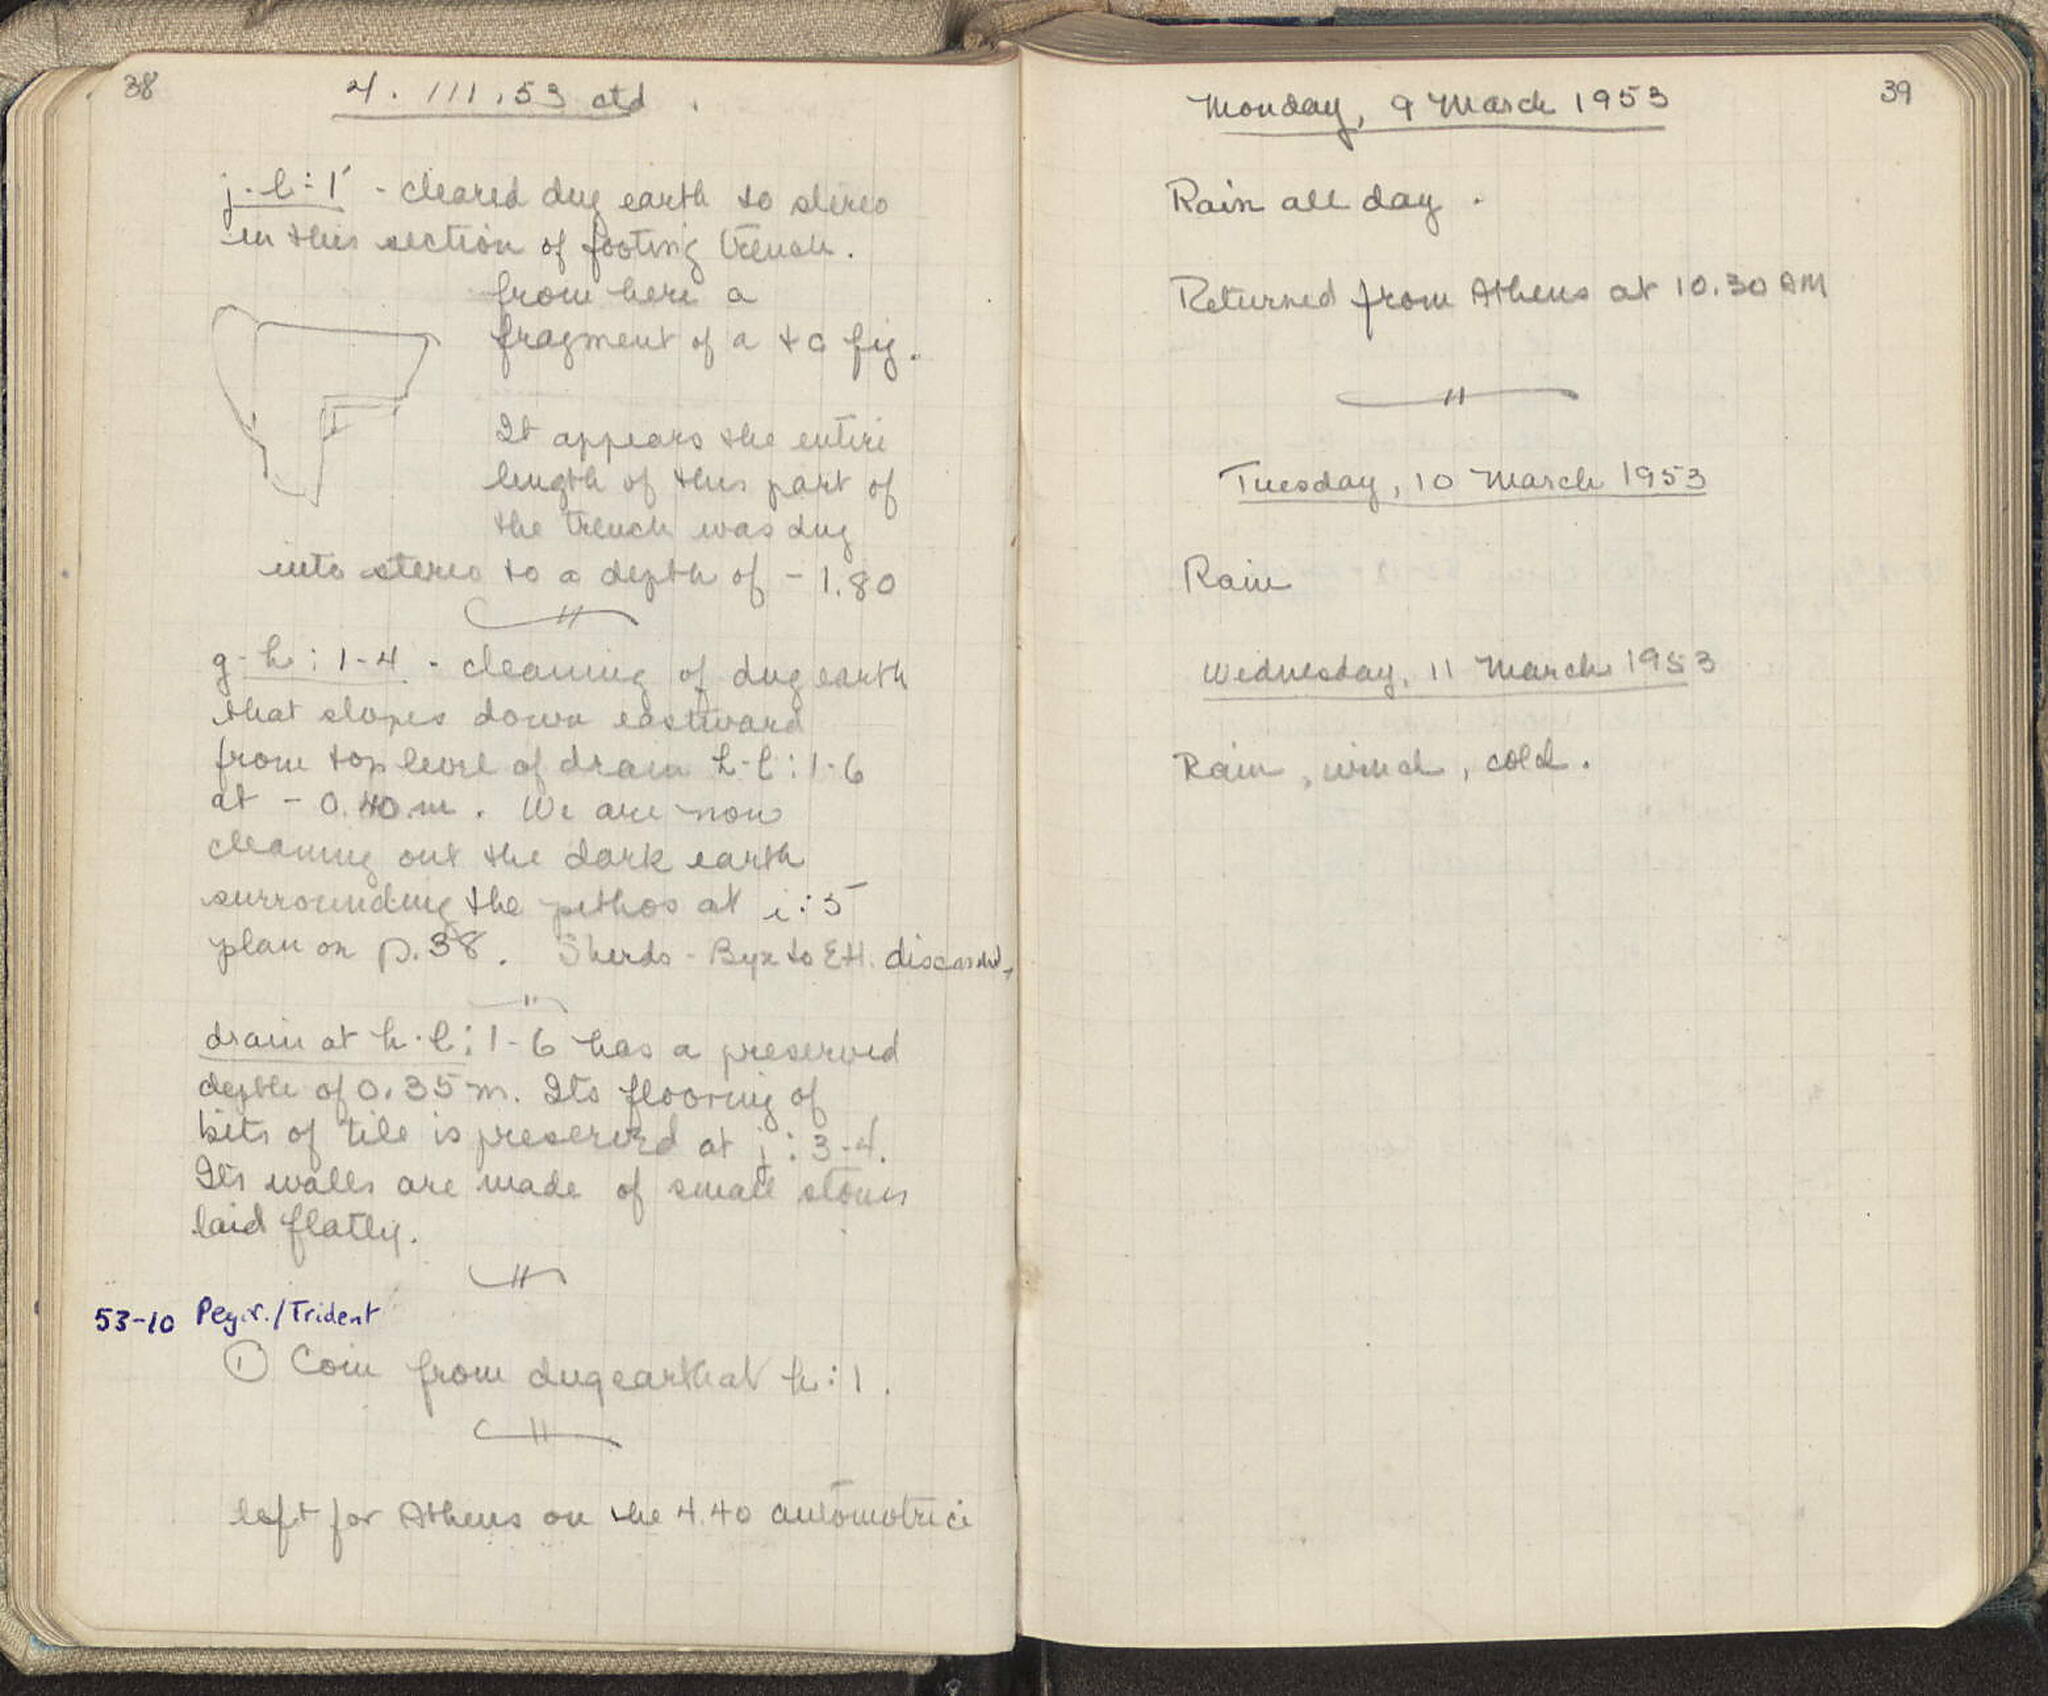 38
4.III.53 ctd.
j-l:1 - cleared dug earth to stereo
in this section of footing trench.
from here a
fragment of a tc fig.
It appears the entire
length of this part of
the trench was dug
into stereo to a depth of -1.80
g-h:1-4 - cleaning of dug earth
that slopes down eastward
from top level of drain h-l:1-6
at -0.40 m. We are now
cleaning out the dark earth
surrounding the pithos at i:5
plan on p.38. Sherds - Byz to EH. discarded.
drain at h-l:1-6 has a preserved
depth of 0.35 m. Its flooring of
bits of tile is preserved at j:3-4.
Its walls are made of small stones
laid flatly.
53-10 Peg.r./Trident
① Coin from dug earth at h:1.
left for Athens on the 4.40 automotrice
39
Monday, 9 March 1953
Rain all day.
Returned from Athens at 10.30 AM
Tuesday, 10 March 1953
Rain
Wednesday, 11 March 1953
Rain, wind, cold.